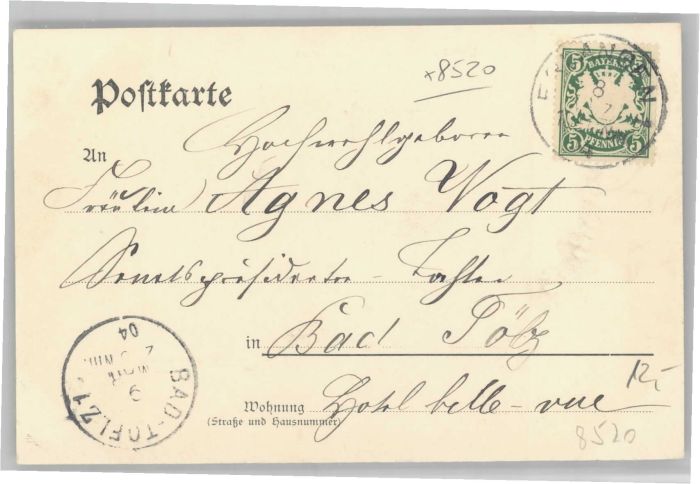 x8520
Postkarte
ERLANGEN
8
BAYERN
5 5
5 PFENNIG 5
Hochwohlgeboren
An
Fräulein Agnes Vogt
Senatspräsidenten - Tochter
in Bad Tölz
12,-
Wohnung Hotel belle-vue
(Straße und Hausnummer)
8520
BAD-TOELZ 1
9
Nm.
04